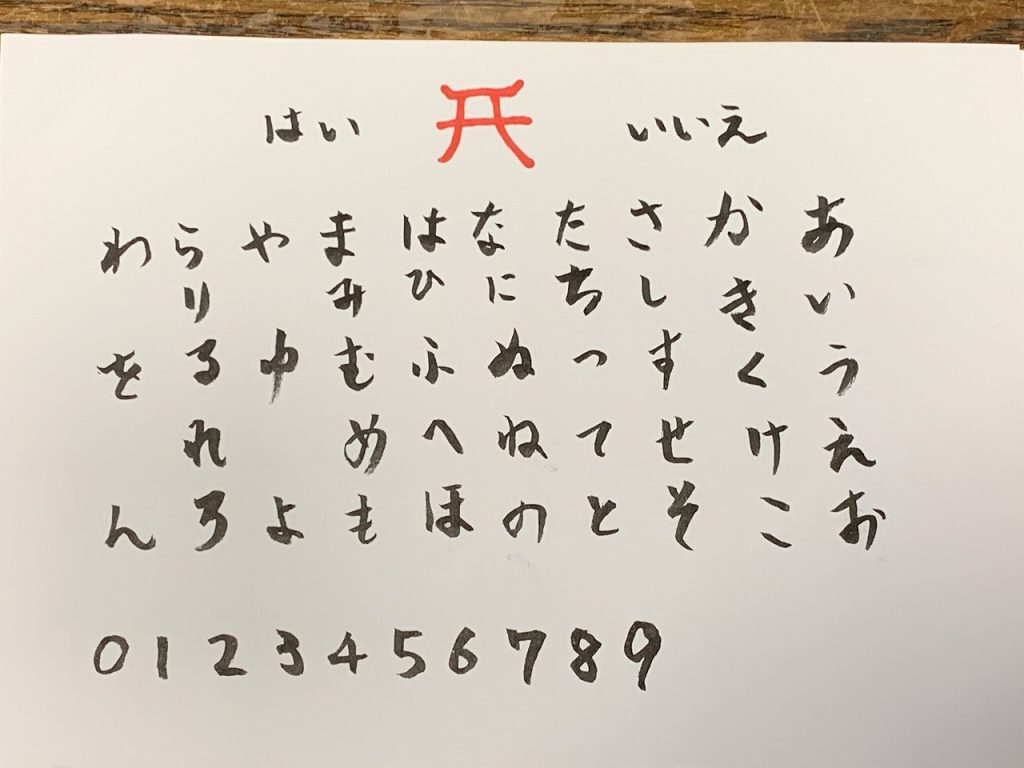 はい いいえ
あいうえお
かきくけこ
さしすせそ
たちつてと
なにぬねの
はひふへほ
まみむめも
やゆよ
らりるれろ
わをん
0123456789